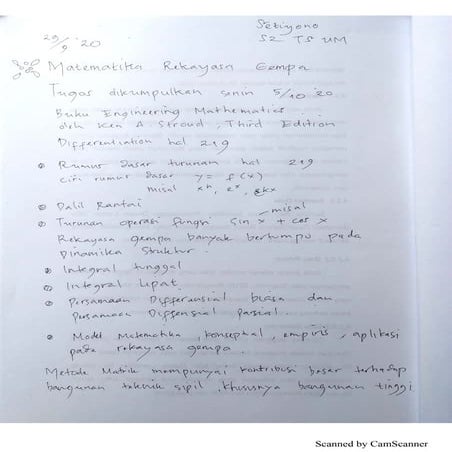 Setiyono
S2 TS UM
29/9 '20
Matematika Rekayasa Gempa
Tugas dikumpulkan senin 5/10 '20
Buku Engineering Mathematics
oleh Ken A Stroud, Third Edition
Differentiation hal 219
Rumus dasar turunan hal 219
ciri rumus dasar y = f(x)
misal xⁿ, eˣ, eᵏˣ
Dalil Rantai
misal
Turunan operasi fungsi sin x + cos x
Rekayasa gempa banyak bertumpu pada
Dinamika Struktur.
Integral tunggal
Integral lipat.
Persamaan Differansial biasa dan
Persamaan Diffensial parsial.
Model Matematika, konseptual, empiris, aplikasi
pada rekayasa gempa.
Metode Matrik mempunyai kontribusi besar terhadap
bangunan teknik sipil, khususnya bangunan tinggi.
Scanned by CamScanner